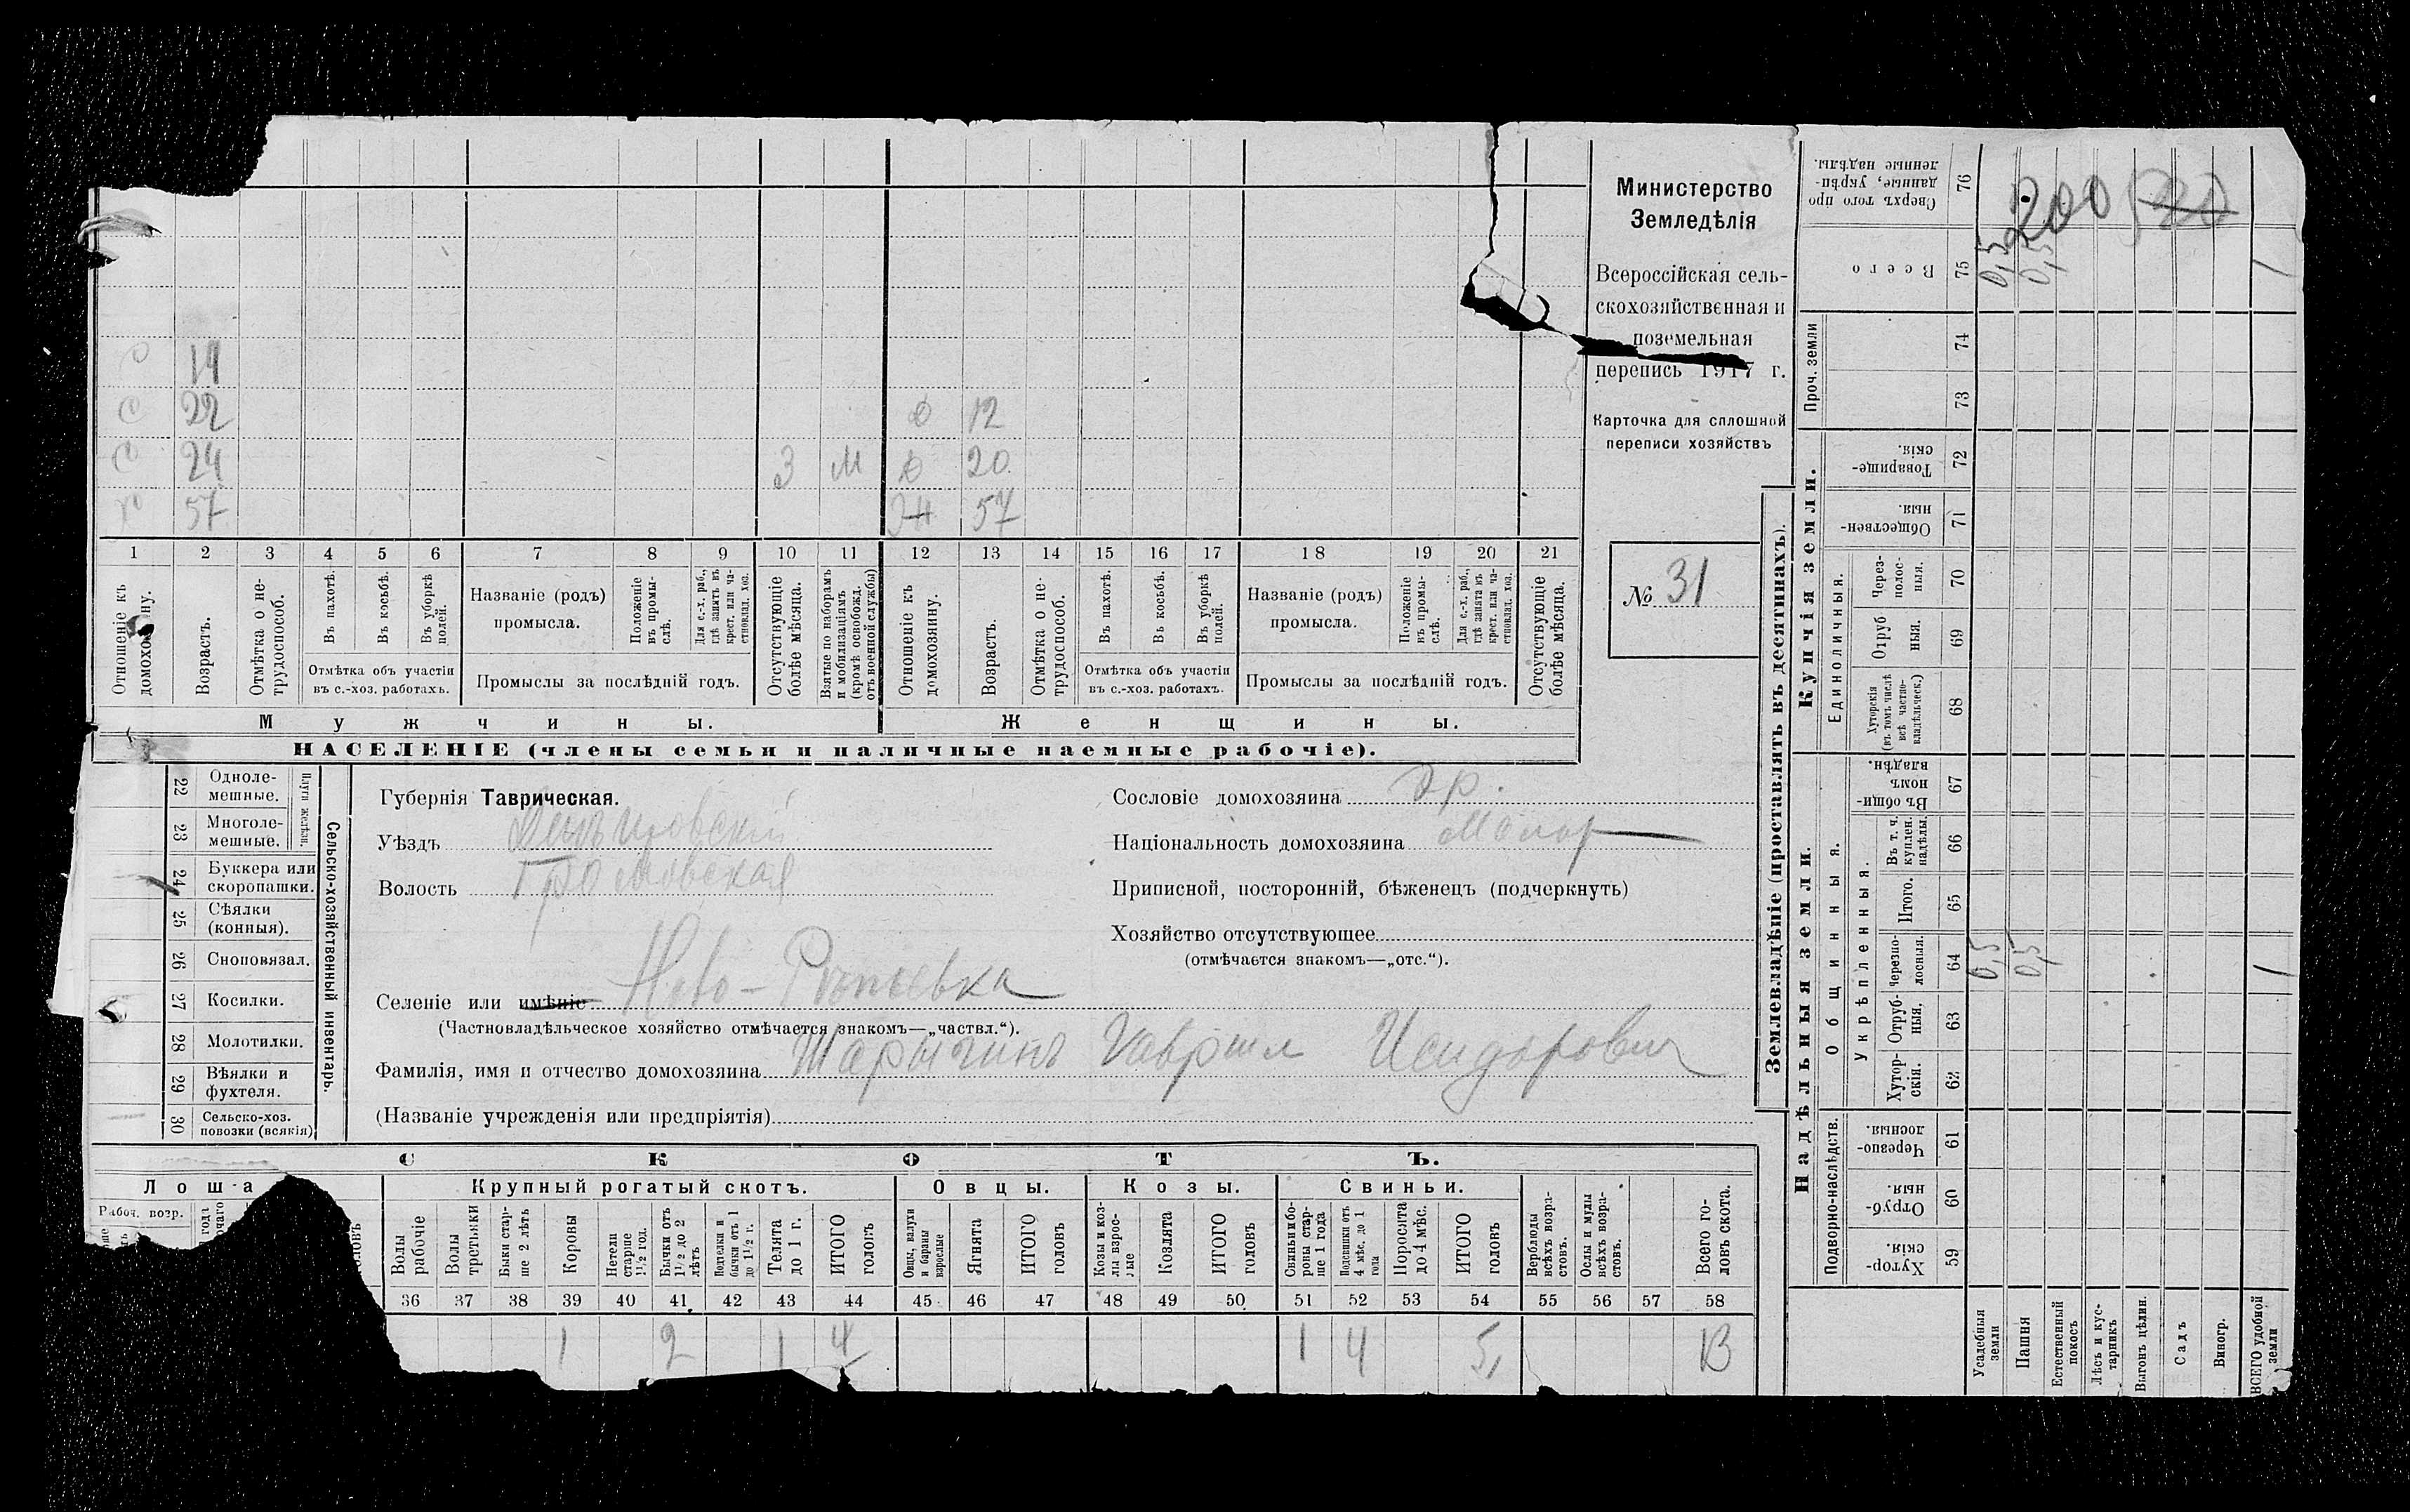 Министерство
Земледѣлія
Всероссійская сель-
скохозяйственная и
поземельная
перепись 1917 г.
Карточка для сплошной
переписи хозяйствъ
№ 31
с 14
с 22 д 12
с 24 3 м д 20
57 ж 57
1 2 3 4 5 6 7 8 9 10 11 12 13 14 15 16 17 18 19 20 21
Отношеніе къ домохозяину.
Возрастъ.
Отмѣтка о не-
трудоспособ.
Въ пахотѣ.
Въ косьбѣ.
Въ уборкѣ
полей.
Отмѣтка объ участіи
въ с.-хоз. работахъ.
Названіе (родъ)
промысла.
Положеніе
въ промы-
слѣ.
Для с.-х. раб.,
гдѣ занятъ въ
крест. или ча-
стновлад. хоз.
Промыслы за послѣдній годъ.
Отсутствующіе
болѣе мѣсяца.
Взятые по наборамъ
и мобилизаціямъ
(кромѣ освобожд.
отъ военной службы)
Отношеніе къ
домохозяину.
Возрастъ.
Отмѣтка о не-
трудоспособ.
Въ пахотѣ.
Въ косьбѣ.
Въ уборкѣ
полей.
Отмѣтка объ участіи
въ с.-хоз. работахъ.
Названіе (родъ)
промысла.
Положеніе
въ промы-
слѣ.
Для с.-х. раб.,
гдѣ занята въ
крест. или ча-
стновлад. хоз.
Промыслы за послѣдній годъ.
Отсутствующіе
болѣе мѣсяца.
Мужчины. Женщины.
НАСЕЛЕНІЕ (члены семьи и наличные наемные рабочіе).
Сельско-хозяйственный инвентарь.
Плуги желѣзн.
22 Одноле-
мешные.
23 Многоле-
мешные.
24 Буккера или
скоропашки.
25 Сѣялки
(конныя).
26 Сноповязал.
27 Косилки.
28 Молотилки.
29 Вѣялки и
фухтеля.
30 Сельско-хоз.
повозки (всякія)
Губернія Таврическая.
Уѣздъ
Волость Громовская
Селеніе или имѣніе Ново-
(Частновладѣльческое хозяйство отмѣчается знакомъ—„частвл.“).
Фамилія, имя и отчество домохозяина Шарыгинъ Гавриил Исидорович
(Названіе учрежденія или предпріятія)
Сословіе домохозяина
Національность домохозяина Малор
Приписной, посторонній, бѣженецъ (подчеркнуть)
Хозяйство отсутствующее
(отмѣчается знакомъ—„отс.“).
СКОТЪ.
Лоша
Рабоч. возр.
Крупный рогатый скотъ.
Овцы.
Козы.
Свиньи.
Волы
рабочіе
Волы
третьяки
Быки стар-
ше 2 лѣтъ
Коровы
Нетели
старше
1½ год.
Бычки отъ
1½ до 2
лѣтъ
Подтелки и
бычки отъ 1
до 1½ г.
Телята
до 1 г.
ИТОГО
головъ
Овцы, валухи
и бараны
взрослые
Ягнята
ИТОГО
головъ
Козы и коз-
лы взрос-
лые
Козлята
ИТОГО
головъ
Свиньи и бо-
ровы стар-
ше 1 года
Подсвинки отъ
4 мѣс. до 1
года
Поросята
до 4 мѣс.
ИТОГО
головъ
Верблюды
всѣхъ возра-
стовъ.
Ослы и мулы
всѣхъ возра-
стовъ.
Всего го-
ловъ скота.
36 37 38 39 40 41 42 43 44 45 46 47 48 49 50 51 52 53 54 55 56 57 58
1 2 1 4 1 4 5
Землевладѣніе (проставлять въ десятинахъ).
Купчія земли.
Надѣльныя земли.
Проч. земли
Единоличныя.
Общинныя.
Укрѣпленныя.
Подворно-наслѣдств.
76 Сверхъ того про
данные, укрѣп-
ленные надѣлы.
200 520
75 Всего 0,5 0,5 1
74
73
72 Товарище-
скія.
71 Обществен-
ныя.
70 Через-
полос-
ныя.
69 Отруб
ныя.
68 Хуторскія
(въ томъ числѣ
всѣ частно-
владѣльческ.)
67 Въ общи-
номъ
владѣн.
66 Въ т. ч.
куплен.
надѣлы.
65 Итого.
64 черезпо-
лосныя. 0,5 0,5 1
63 Отруб-
ныя.
62 Хутор-
скія.
61 Черезпо-
лосныя.
60 Отруб-
ныя.
59 Хутор-
скія.
Усадебныя
земли
Пашня
Естественный
покосъ
Лѣсъ и кус-
тарникъ
Выгонъ цѣлин.
Садъ
Виногр.
ВСЕГО удобной
земли